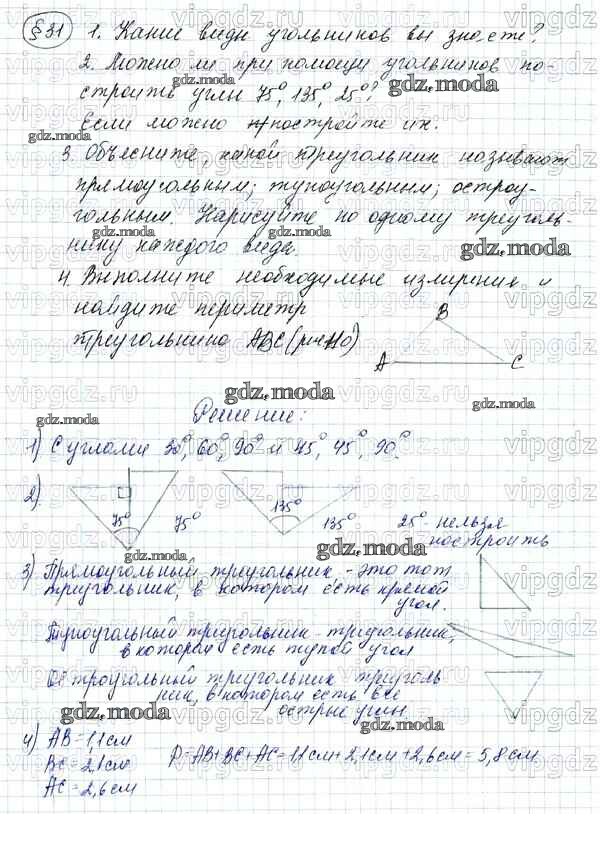 §31 1. Какие виды угольников вы знаете?
2. Можно ли при помощи угольников по-
строить углы 75°, 135°, 25°?
Если можно постройте их.
3. Объясните, какой треугольник называют
прямоугольным; тупоугольным; остроу-
гольным. Нарисуйте по одному треуголь-
нику каждого вида.
4. Выполните необходимые измерения и
найдите периметр
треугольника ABC
B
A
C
Решение:
1) С углами 30°, 60°, 90° и 45°, 45°, 90°.
2).
75°
75°
135°
135°
25° - нельзя
построить
3) Прямоугольный треугольник - это тот
триугольник, в котором есть прямой
угол.
Тупоугольный триугольник - триугольник,
в котором есть тупой угол
Остроугольный треугольник триуголь
ник, в котором есть все
острые углы.
4) AB = 1,1 см
BC = 2,1 см
AC = 2,6 см
P = AB + BC + AC = 1,1 см + 2,1 см + 2,6 см = 5,8 см
gdz.moda
vipgdz.ru